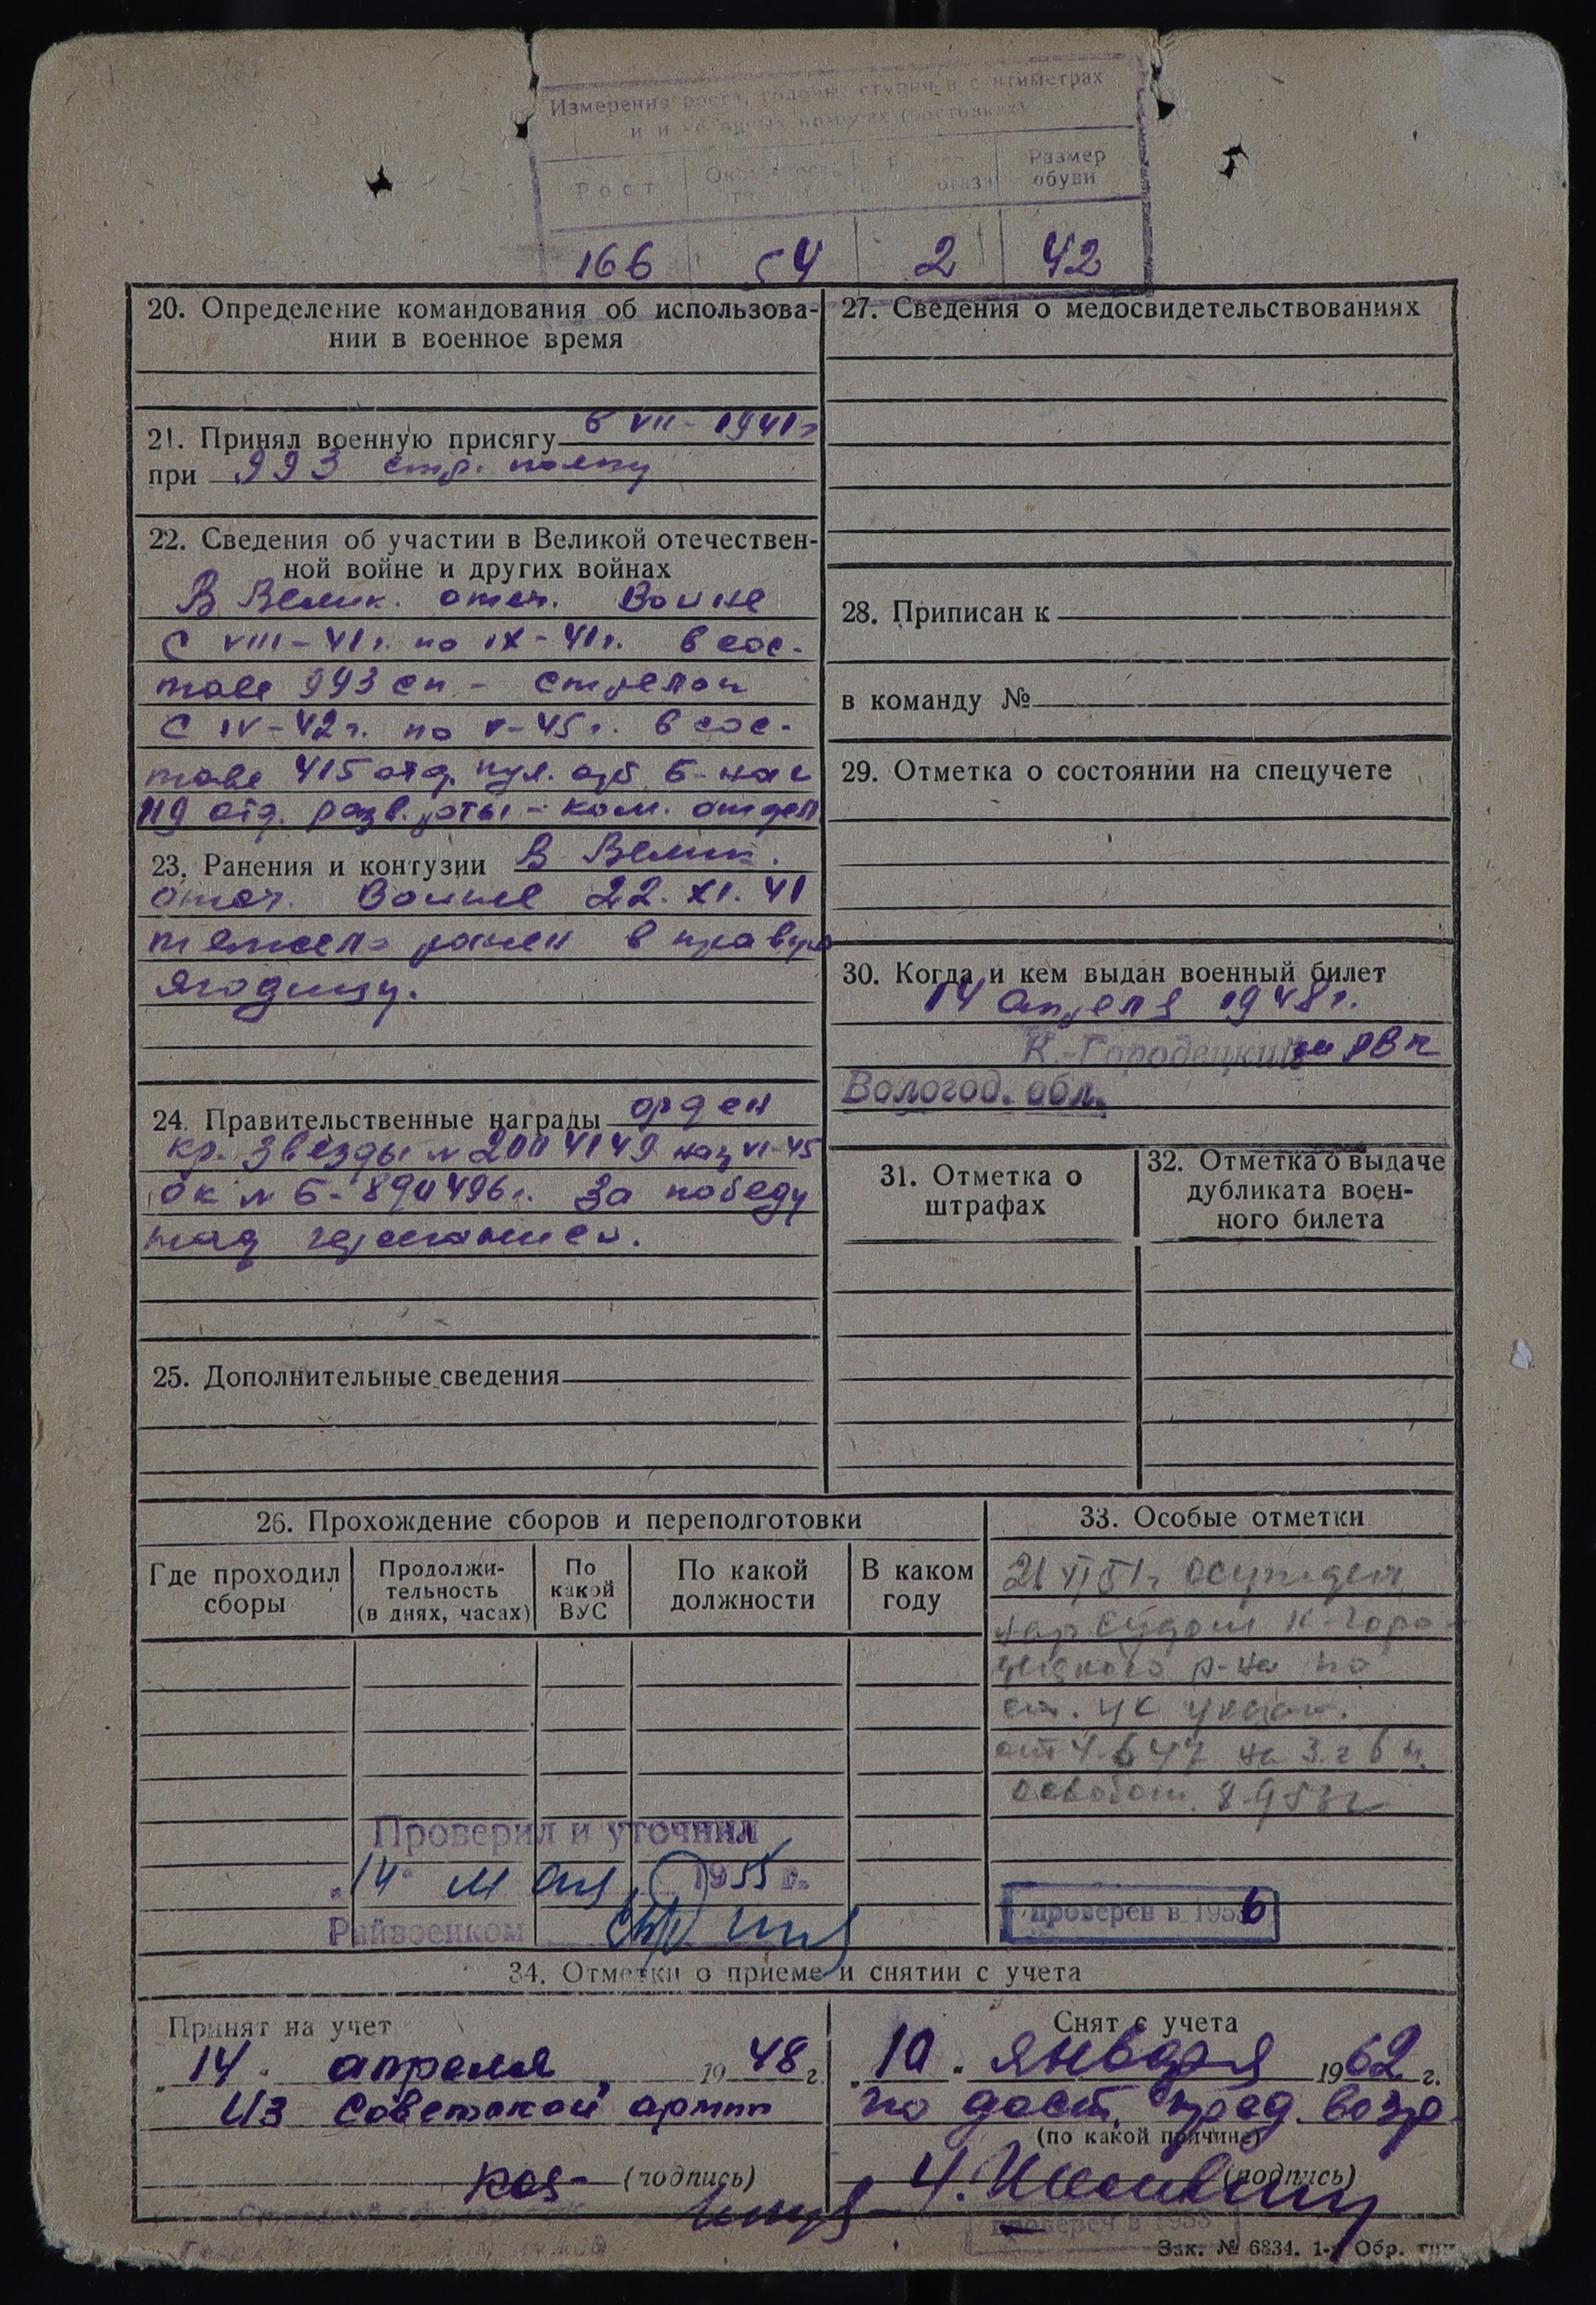 Измерения роста, головы, ступни в сантиметрах
Рост
Размер
обуви
166
54
2
42
20. Определение командования об использова-
нии в военное время
21. Принял военную присягу 6 VII - 1941г
при 993 стр. полку
22. Сведения об участии в Великой отечествен-
ной войне и других войнах
В Велик. отеч. Войне
С VIII-41г. по IX-41г. в сос-
таве 993 сп - стрелок
С IV-42г. по V-45г. в сос-
таве 415 отд. пул. арт. б-на и
119 отд. разв. роты - ком. отдел
23. Ранения и контузии В Велик.
отеч. Войне 22.XI.41
тяжело ранен в правую
ягодицу.
24. Правительственные награды орден
кр. Звезды № 2004149 VI-45
ок № Б-890496г. За победу
над германией.
25. Дополнительные сведения
26. Прохождение сборов и переподготовки
Где проходил
сборы
Продолжи-
тельность
(в днях, часах)
По
какой
ВУС
По какой
должности
В каком
году
Проверил и уточнил
"14" мая 1955 г.
Райвоенком
27. Сведения о медосвидетельствованиях
28. Приписан к
в команду №
29. Отметка о состоянии на спецучете
30. Когда и кем выдан военный билет
14 апреля 1948г.
К.-Городецким РВК
Вологод. обл.
31. Отметка о
штрафах
32. Отметка о выдаче
дубликата воен-
ного билета
33. Особые отметки
21 VI 51г осужден
нар судом К-Горо-
децкого р-на по
ст. УК указ.
от 4.6.47 на 3 г
освобож. 53г
проверен в 1956
34. Отметки о приеме и снятии с учета
Принят на учет
"14" апреля 1948 г.
Из Советской армии
(подпись)
Снят с учета
"10" января 1962 г.
по дост. пред. возр.
(по какой причине)
(подпись)
проверен в 1958
Зак. № 6834. 1-я Обр. тип.